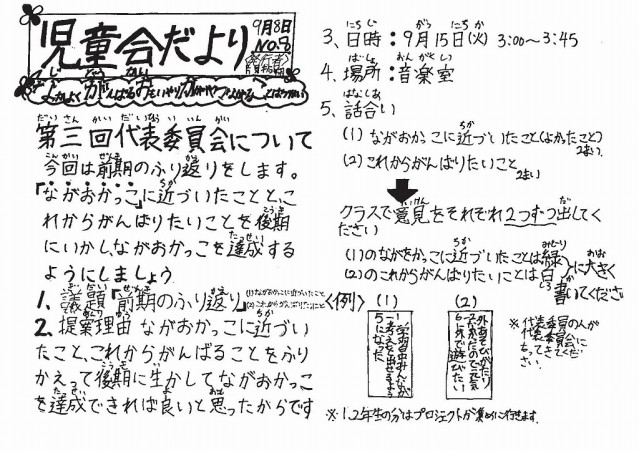 児童会だより
9月8日
No.9
第三回代表委員会について
今回は前期のふり返りをします。
「ながおかっこ」に近づいたことと、こ
れからがんばりたいことを後期
にいかし、ながおかっこを達成する
ようにしましょう
1、議題「前期のふり返り」
(1)ながおかっこに近づいたこと
(2)これからがんばりたいこと
2、提案理由 ながおかっこに近づい
たこと、これからがんばることをふり
かえって後期に生かしてながおかっこ
を達成できれば良いと思ったからです
3、日時:9月15日(火) 3:00〜3:45
4、場所:音楽室
5、話合い
(1)ながおかっこに近づいたこと(よかったこと)
2まい
(2)これからがんばりたいこと
2まい
クラスで意見をそれぞれ2つずつ出してく
ださい
(1)のながおかっこに近づたことは緑
(2)のこれからがんばりたいことは白
に大きく
書いてくださ
<例>
(1)
(2)
※代表委員の人が
代表委員会に
もってきてくだ
さい。
※1.2年生の分はプロジェクトが集めに行きます.